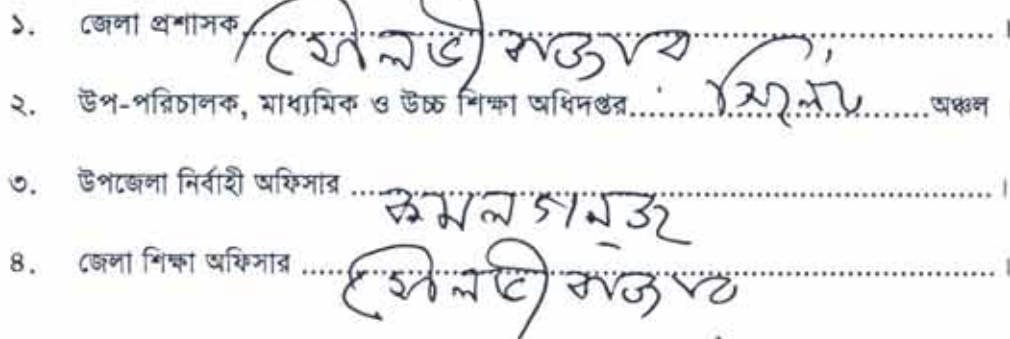 ১. জেলা প্রশাসক মৌলভীবাজার ।
২. উপ-পরিচালক, মাধ্যমিক ও উচ্চ শিক্ষা অধিদপ্তর..... সিলেট .....অঞ্চল ।
৩. উপজেলা নির্বাহী অফিসার ..... কমলগন্জ ।
৪. জেলা শিক্ষা অফিসার ..... মৌলভীবাজার ।